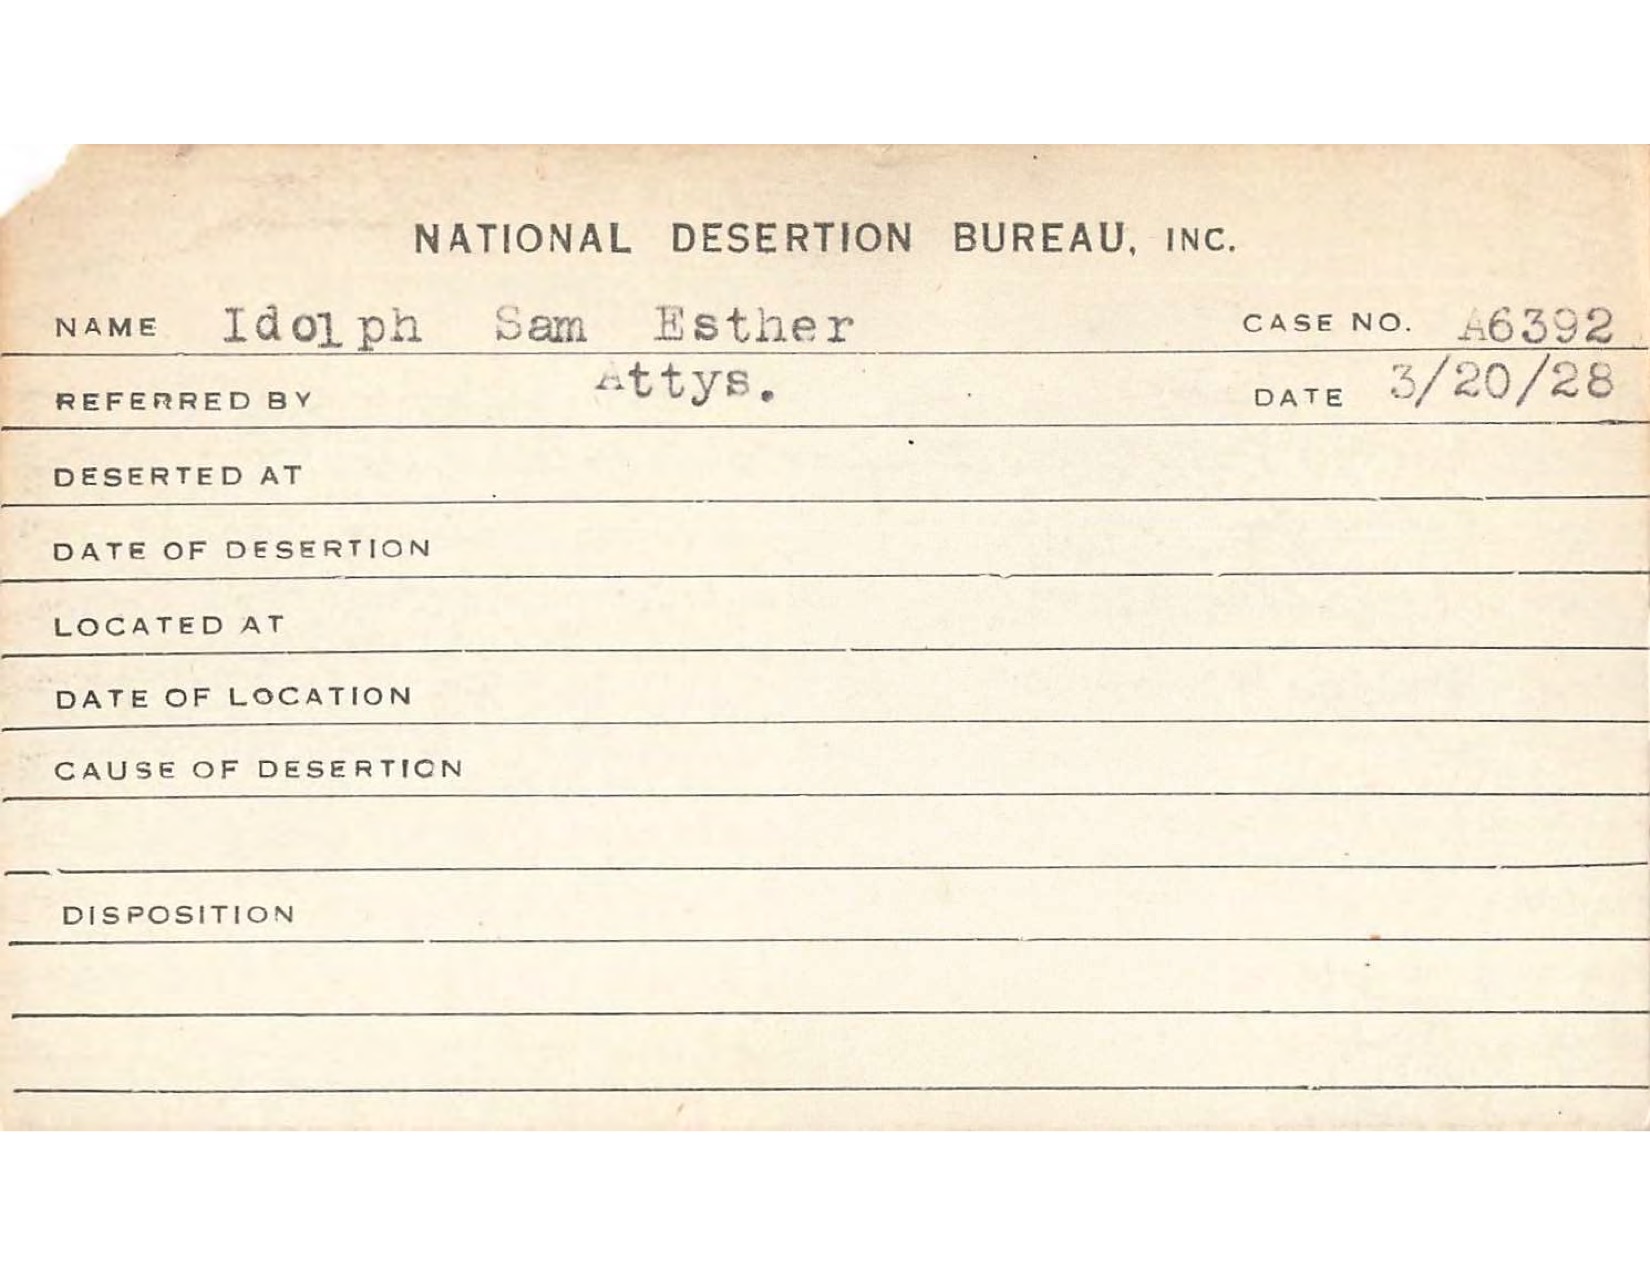 NATIONAL DESERTION BUREAU, INC.
NAME Idolph Sam Esther CASE NO. A6392
REFERRED BY Attys. DATE 3/20/28
DESERTED AT
DATE OF DESERTION
LOCATED AT
DATE OF LOCATION
CAUSE OF DESERTION
DISPOSITION